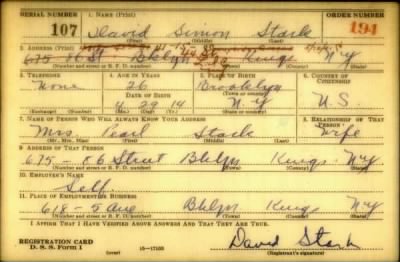 SERIAL NUMBER 1. NAME (Print) ORDER NUMBER
107 David Simon Stark 194
(First) (Middle) (Last)
2. ADDRESS (Print)
675 - 86 St Bklyn Kings N.Y.
(Number and street or R. F. D. number) (Town) (County) (State)
3. TELEPHONE 4. AGE IN YEARS 5. PLACE OF BIRTH 6. COUNTRY OF CITIZENSHIP
None 26 Brooklyn
DATE OF BIRTH
4 29 14 N.Y. U.S.
(Exchange) (Number) (Mo.) (Day) (Yr.) (State or country)
7. NAME OF PERSON WHO WILL ALWAYS KNOW YOUR ADDRESS 8. RELATIONSHIP OF THAT PERSON
Mrs. Pearl Stark Wife
(Mr., Mrs., Miss) (First) (Middle) (Last)
9. ADDRESS OF THAT PERSON
675 - 86 Street Bklyn Kings N.Y.
(Number and street or R. F. D. number) (Town) (County) (State)
10. EMPLOYER'S NAME
Self
11. PLACE OF EMPLOYMENT OR BUSINESS
618 - 5 ave Bklyn Kings N.Y.
(Number and street or R. F. D. number) (Town) (County) (State)
I AFFIRM THAT I HAVE VERIFIED ABOVE ANSWERS AND THAT THEY ARE TRUE.
REGISTRATION CARD
D. S. S. Form 1 (over) David Stark
(Registrant's signature)